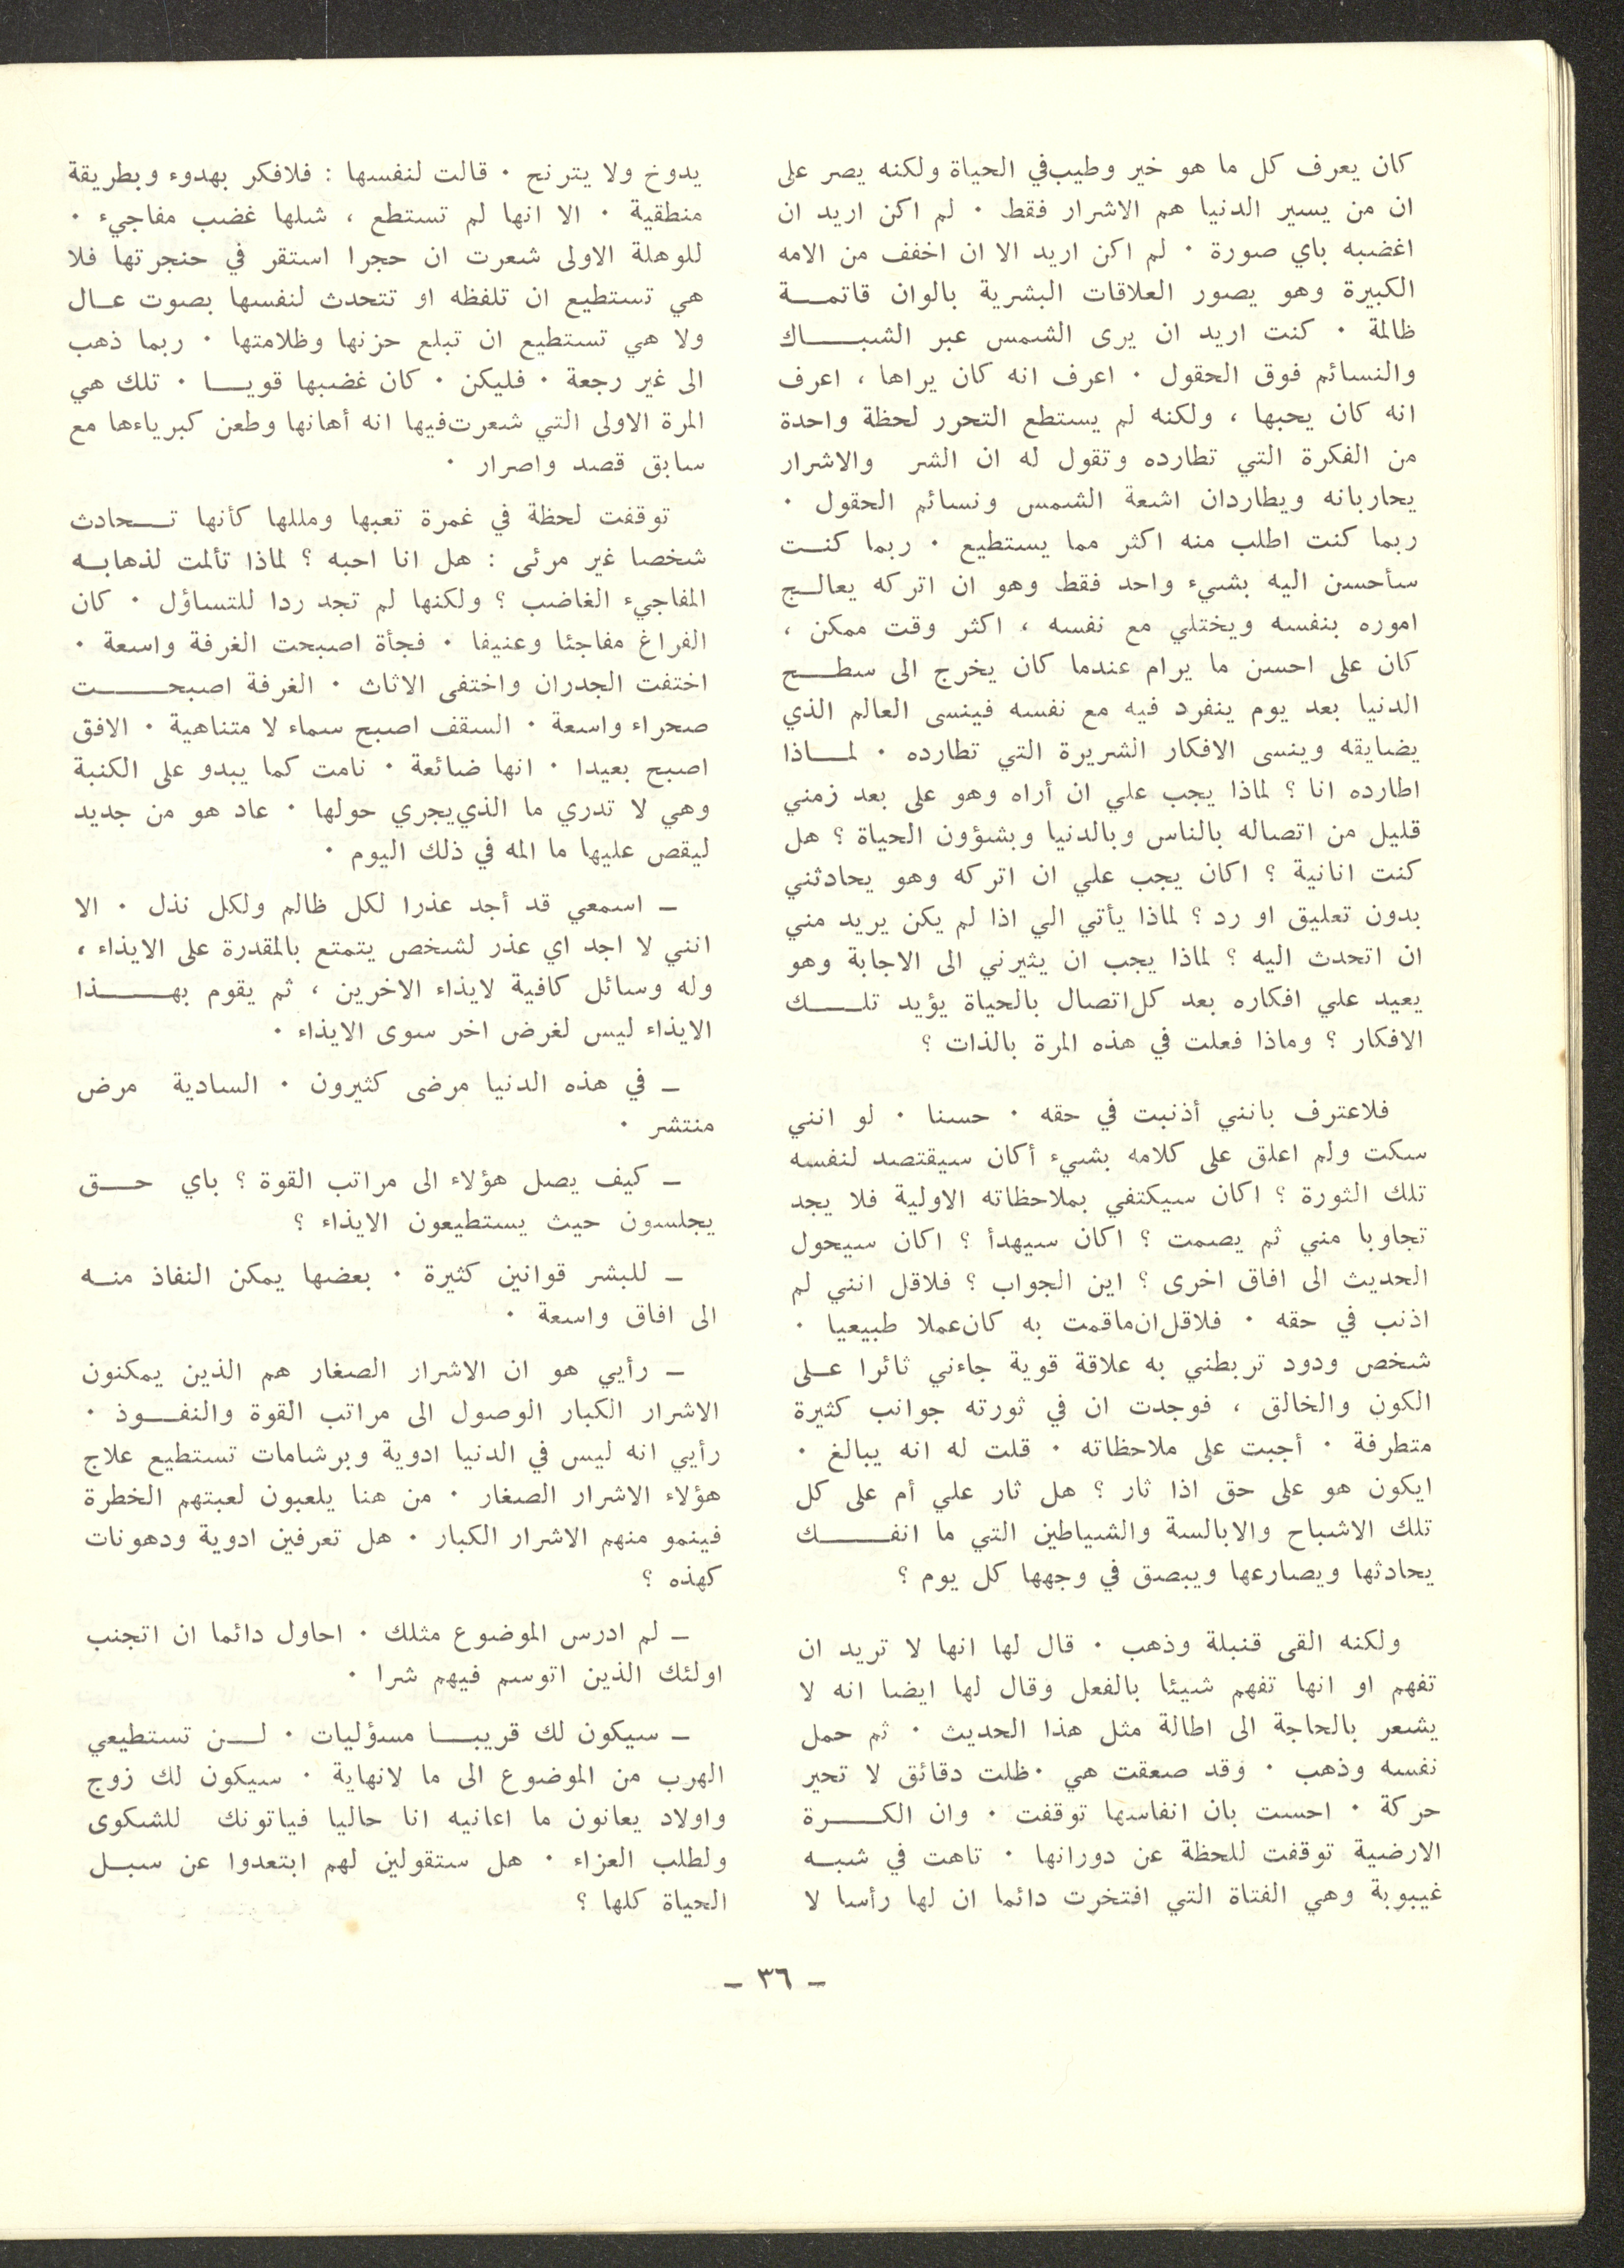 كان يعرف كل ما هو خير وطيب في الحياة ولكنه يصر على
ان من يسير الدنيا هم الاشرار فقط ٠ لم اكن اريد ان
اغضبه باي صورة ٠ لم اكن اريد الا ان اخفف من الامه
الكبيرة وهو يصور العلاقات البشرية بالوان قاتمة
ظالمة ٠ كنت اريد ان يرى الشمس عبر الشباك
والنسائم فوق الحقول ٠ اعرف انه كان يراها ، اعرف
انه كان يحبها ، ولكنه لم يستطع التحرر لحظة واحدة
من الفكرة التي تطارده وتقول له ان الشر والاشرار
يحاربانه ويطاردان اشعة الشمس ونسائم الحقول ٠
ربما كنت اطلب منه اكثر مما يستطيع ٠ ربما كنت
سأحسن اليه بشيء واحد فقط وهو ان اتركه يعالج
اموره بنفسه ويختلي مع نفسه ، اكثر وقت ممكن ،
كان على احسن ما يرام عندما كان يخرج الى سطح
الدنيا بعد يوم ينفرد فيه مع نفسه فينسى العالم الذي
يضايقه وينسى الافكار الشريرة التي تطارده ٠ لماذا
اطارده انا ؟ لماذا يجب علي ان أراه وهو على بعد زمني
قليل من اتصاله بالناس وبالدنيا وبشؤون الحياة ؟ هل
كنت انانية ؟ اكان يجب علي ان اتركه وهو يحادثني
بدون تعليق او رد ؟ لماذا يأتي الي اذا لم يكن يريد مني
ان اتحدث اليه ؟ لماذا يجب ان يثيرني الى الاجابة وهو
يعيد علي افكاره بعد كل اتصال بالحياة يؤيد تلك
الافكار ؟ وماذا فعلت في هذه المرة بالذات ؟
فلاعترف بانني أذنبت في حقه ٠ حسنا ٠ لو انني
سكت ولم اعلق على كلامه بشيء أكان سيقتصد لنفسه
تلك الثورة ؟ اكان سيكتفي بملاحظاته الاولية فلا يجد
تجاوبا مني ثم يصمت ؟ اكان سيهدأ ؟ اكان سيحول
الحديث الى افاق اخرى ؟ اين الجواب ؟ فلاقل انني لم
اذنب في حقه ٠ فلاقل ان ماقمت به كان عملا طبيعيا ٠
شخص ودود تربطني به علاقة قوية جاءني ثائرا على
الكون والخالق ، فوجدت ان في ثورته جوانب كثيرة
متطرفة ٠ أجبت على ملاحظاته ٠ قلت له انه يبالغ ٠
ايكون هو على حق اذا ثار ؟ هل ثار علي أم على كل
تلك الاشباح والابالسة والشياطين التي ما انفك
يحادثها ويصارعها ويبصق في وجهها كل يوم ؟
ولكنه القى قنبلة وذهب ٠ قال لها انها لا تريد ان
تفهم او انها تفهم شيئا بالفعل وقال لها ايضا انه لا
يشعر بالحاجة الى اطالة مثل هذا الحديث ٠ ثم حمل
نفسه وذهب ٠ وقد صعقت هي ٠ ظلت دقائق لا تحير
حركة ٠ احست بان انفاسها توقفت ٠ وان الكرة
الارضية توقفت للحظة عن دورانها ٠ تاهت في شبه
غيبوبة وهي الفتاة التي افتخرت دائما ان لها رأسا لا
يدوخ ولا يترنح ٠ قالت لنفسها : فلافكر بهدوء وبطريقة
منطقية ٠ الا انها لم تستطع ، شلها غضب مفاجيء ٠
للوهلة الاولى شعرت ان حجرا استقر في حنجرتها فلا
هي تستطيع ان تلفظه او تتحدث لنفسها بصوت عال
ولا هي تستطيع ان تبلع حزنها وظلامتها ٠ ربما ذهب
الى غير رجعة ٠ فليكن ٠ كان غضبها قويا ٠ تلك هي
المرة الاولى التي شعرت فيها انه أهانها وطعن كبرياءها مع
سابق قصد واصرار ٠
توقفت لحظة في غمرة تعبها ومللها كأنها تحادث
شخصا غير مرئى : هل انا احبه ؟ لماذا تألمت لذهابه
المفاجيء الغاضب ؟ ولكنها لم تجد ردا للتساؤل ٠ كان
الفراغ مفاجئا وعنيفا ٠ فجأة اصبحت الغرفة واسعة ٠
اختفت الجدران واختفى الاثاث ٠ الغرفة اصبحت
صحراء واسعة ٠ السقف اصبح سماء لا متناهية ٠ الافق
اصبح بعيدا ٠ انها ضائعة ٠ نامت كما يبدو على الكنبة
وهي لا تدري ما الذي يجري حولها ٠ عاد هو من جديد
ليقص عليها ما المه في ذلك اليوم ٠
ـ اسمعي قد أجد عذرا لكل ظالم ولكل نذل ٠ الا
انني لا اجد اي عذر لشخص يتمتع بالمقدرة على الايذاء ،
وله وسائل كافية لايذاء الاخرين ، ثم يقوم بهذا
الايذاء ليس لغرض اخر سوى الايذاء ٠
ـ في هذه الدنيا مرضى كثيرون ٠ السادية مرض
منتشر ٠
ـ كيف يصل هؤلاء الى مراتب القوة ؟ باي حق
يجلسون حيث يستطيعون الايذاء ؟
ـ للبشر قوانين كثيرة ٠ بعضها يمكن النفاذ منه
الى افاق واسعة ٠
ـ رأيي هو ان الاشرار الصغار هم الذين يمكنون
الاشرار الكبار الوصول الى مراتب القوة والنفوذ ٠
رأيي انه ليس في الدنيا ادوية وبرشامات تستطيع علاج
هؤلاء الاشرار الصغار ٠ من هنا يلعبون لعبتهم الخطرة
فينمو منهم الاشرار الكبار ٠ هل تعرفين ادوية ودهونات
كهذه ؟
ـ لم ادرس الموضوع مثلك ٠ احاول دائما ان اتجنب
اولئك الذين اتوسم فيهم شرا ٠
ـ سيكون لك قريبا مسؤليات ٠ لن تستطيعي
الهرب من الموضوع الى ما لانهاية ٠ سيكون لك زوج
واولاد يعانون ما اعانيه انا حاليا فياتونك للشكوى
ولطلب العزاء ٠ هل ستقولين لهم ابتعدوا عن سبل
الحياة كلها ؟
ـ ٣٦ ـ